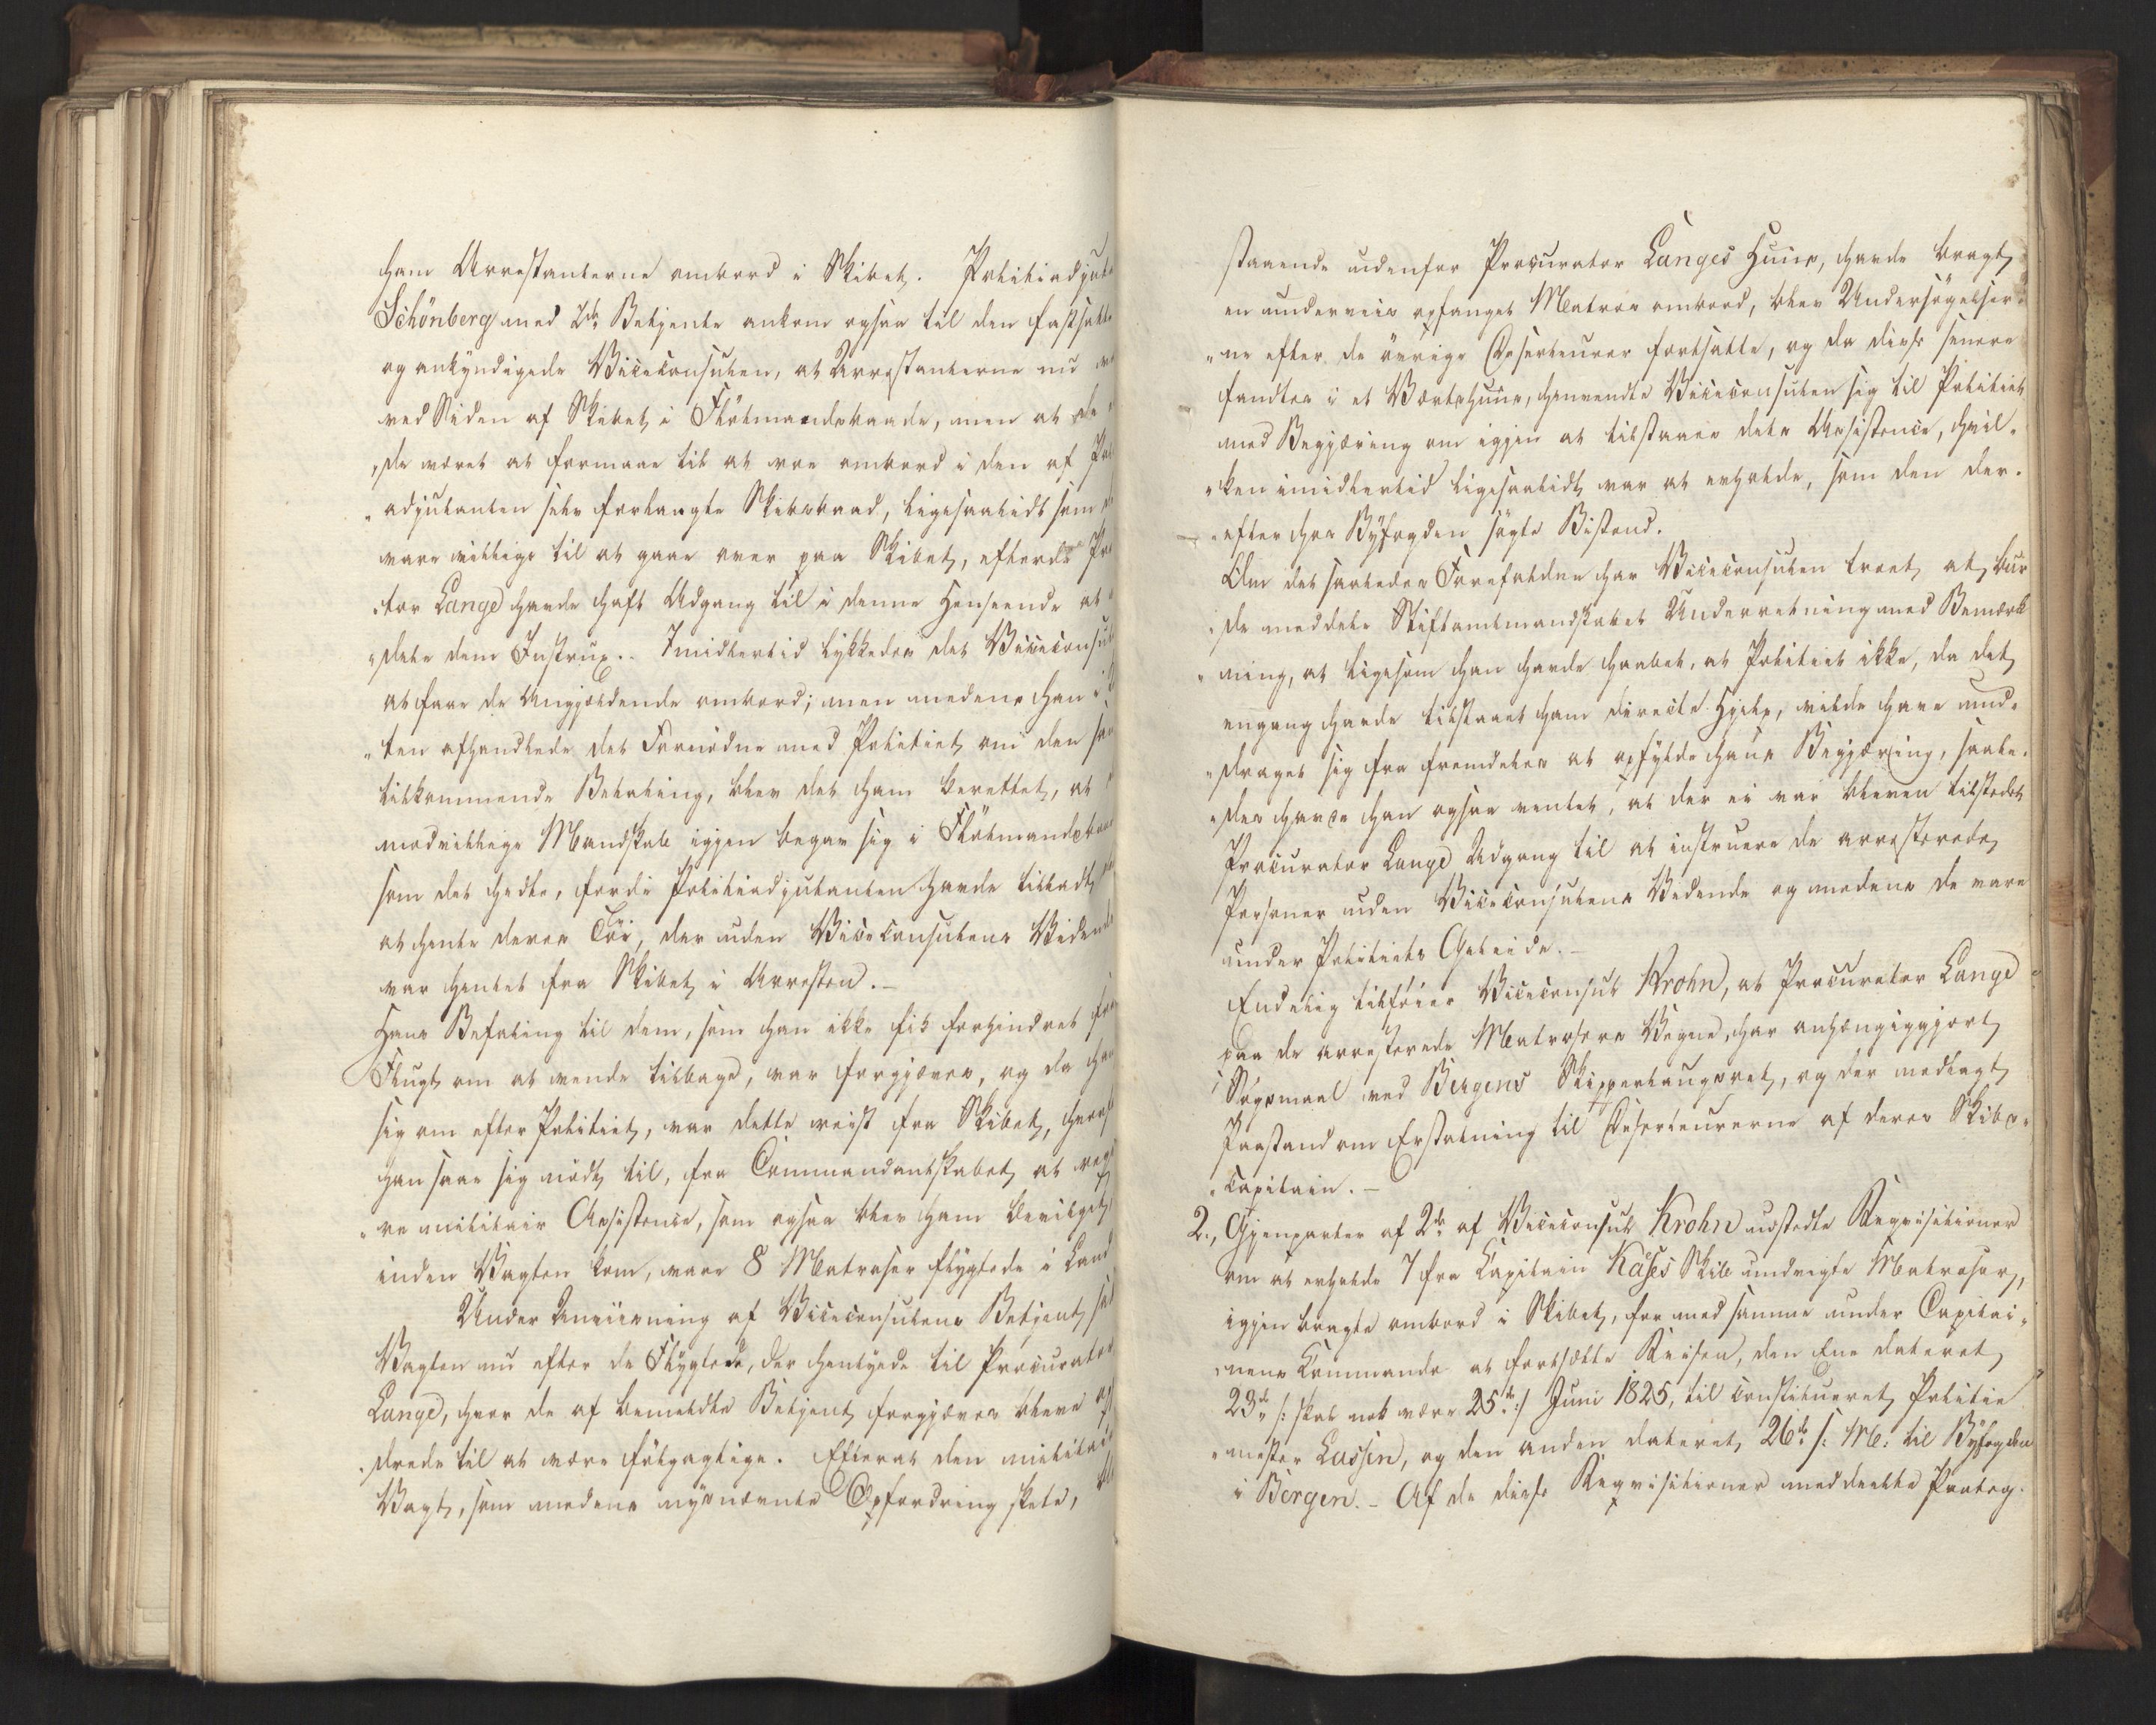 ham Arrestanterne ombord i Skibet. Politiadjut
Schönberg med 2de Betjente ankom ogsaa til den fastsatte
og ankyndigede Viceconsulen, at Arrestanterne nu
ved Siden af Skibet i Flötmandsbaade, men at de
„de været at formaae til at roe ombord i den af Pol
„adjutanten selv forlangte Skibsbaad, ligesaalidt som
vare villige til at gaae over paa Skibet, efterat Pro
„tor Lange havde havt Adgang til i denne Henseende at
„dele dem Instrux. Imidlertid lykkedes det Viceconsul
at faae de Angjældende ombord; men medens han i
„ten afhandlede det Fornödne med Politiet om den
tilkommende Betaling, blev det ham berettet, at
modvillige Mandskab igjen begav sig i Flötmandsbaa
som det hedte, fordi Politiadjutanten havde tilladt
at hente deres Töi, der uden Viceconsulens Vidende
var hentet fra Skibet i Arresten.–
Hans Befaling til dem, som han ikke fik forhindret fra
Flugt om at vende tilbage, var forgjæves, og da han
sig om efter Politiet, var dette reist fra Skibet, hvorf
han saae sig nödt til, fra Commandantskabet at
„re militair Assistence, som ogsaa blev ham bevilget,
inden Vagten kom, vare 8 Matroser flygtede i Land
Under Anviisning af Viceconsulens Betjent
Vagten nu efter de Flygtede, der hentyede til Procurator
Lange, hvor de af bemeldte Betjent forgjæves bleve
„drede til at være fölgagtige. Efterat den militai
Vagt, som medens nysnævnte Opfordring skete,
staaende udenfor Procurator Langes Huus, havde bragt
en underveis opfanget Matros ombord, blev Undersögelser-
„ne efter de övrige Deserteurer fortsatte, og da disse senere
fandtes i et Værtshuus, henvendte Viceconsulen sig til Politiet
med Begjæring om igjen at tilstaaes dets Assistence, hvil-
„ken imidlertid ligesaalidt var at erholde, som den der-
„efter hos Byfogden sögte Bistand.
Om det saaledes Forefaldne har Viceconsulen troet, at bur
„de meddele Stiftamtmandskabet Underretning med Bemærk
„ning, at ligesom han havde haabet, at Politiet ikke, da det
engang havde tilstaaet ham directe Hjelp, vilde have und-
„draget sig fra fremdeles at opfylde hans Begjæring, saale-
„des havde han ogsaa ventet, at der ei var bleven tilstedet
Procurator Lange Adgang til at instruere de arresterede
Personer uden Viceconsulens Vidende og medens de vare
under Politiets Geleide.–
Endelig tilföier Viceconsul Krohn, at Procurator Lange
paa de arresterede Matrosers Vegne, har anhængiggjort
Sögsmaal ved Bergens Skipperlaugsret, og der nedlagt
Paastand om Erstatning til Deserteurerne af deres Skibs-
„capitain.–
2., Gjenparter af 2de af Viceconsul Krohn udstedte Reqvisitioner
om at erholde 7 fra Capitain Käses Skib undvigte Matroser,
igjen bragte ombord i Skibet, for med samme under Capitai-
„nens Commando at fortsætte Reisen, den Ene dateret
23de /: skal nok være 25de :/ Juni 1825, til constitueret Politie
„mester Lassen, og den anden dateret 26de s: M: til Byfogden
i Bergen.– Af de disse Reqvisitioner meddeelte Paateg-